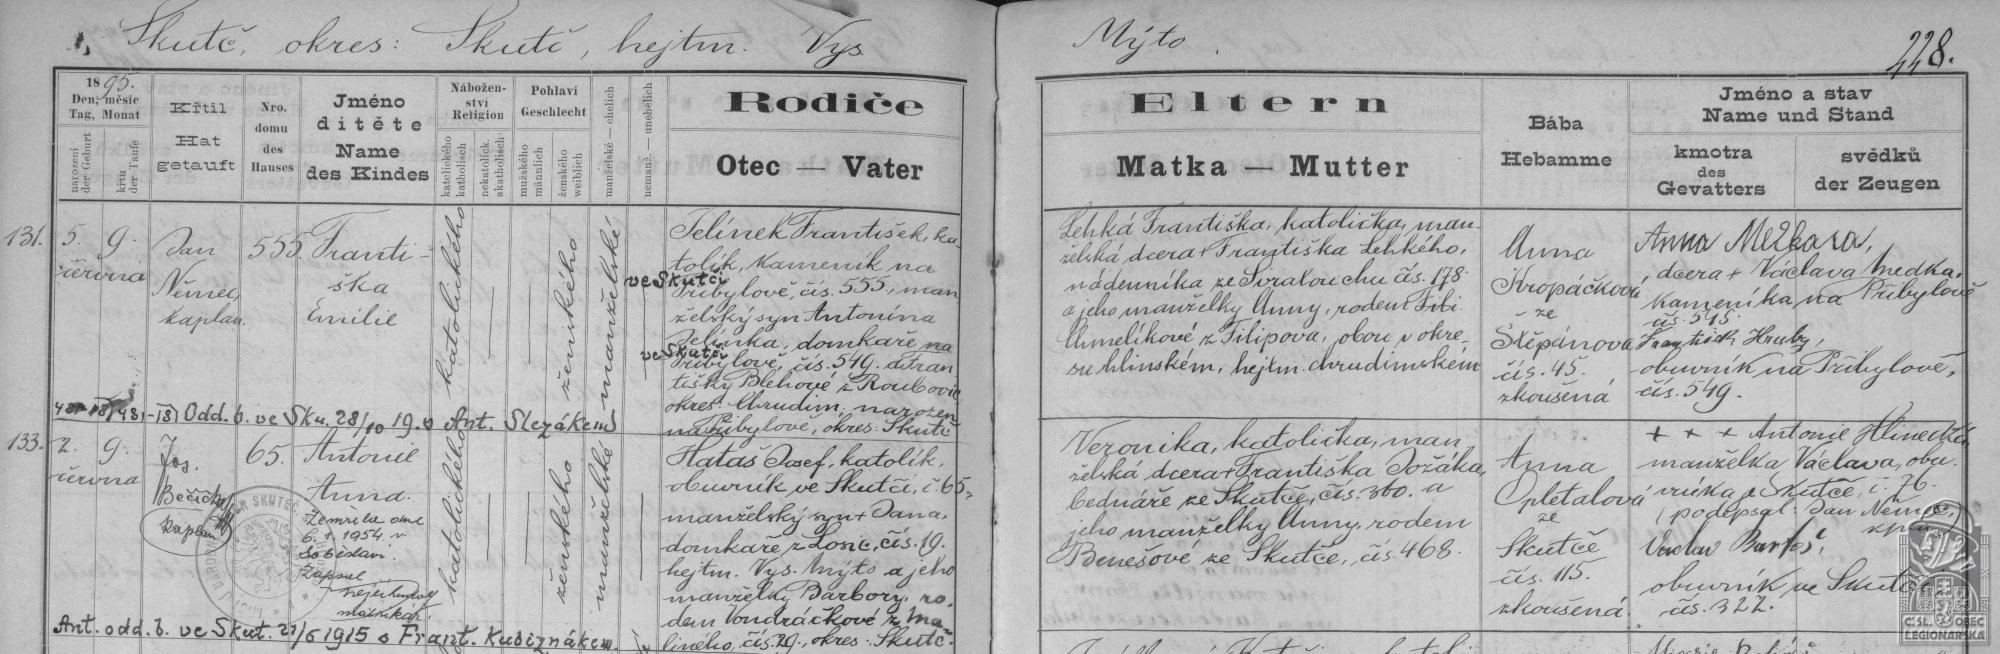 Skutč, okres: Skutč, hejtm. Vys. Mýto
228.
1895.
Den, měsíc
Tag, Monat
narození
der Geburt
křtu
der Taufe
Křtil
Hat
getauft
Nro.
domu
des
Hauses
Jméno
dítěte
Name
des Kindes
Nábožen-
ství
Religion
katolického
katholisch
nekatolick.
akatholisch
Pohlaví
Geschlecht
mužského
männlich
ženského
weiblich
manželské — ehelich
nemanž. — unehelich
Rodiče
Otec — Vater
Eltern
Matka — Mutter
Bába
Hebamme
Jméno a stav
Name und Stand
kmotra
des
Gevatters
svědků
der Zeugen
131.
5. 9.
června
Jan
Němec,
kaplan.
555.
Franti-
ška
Emilie
katolického
ženského
manželské
Jelínek František, ka-
tolík, kameník na
ve Skutči
Přibylově, čís. 555, man-
želský syn Antonína
Jelínka, domkaře na
ve Skutči
Přibylově, čís. 549. a Fran-
tišky Blehové z Roubovic
okres: Chrudim, narozen
na Přibylově, okres: Skutč
Odd. b. ve Sku. 28/10 19. o Ant. Slezákem
Lehká Františka, katolička, man-
želská dcera + Františka Lehkého,
nádenníka ze Svratouchu čís. 178
a jeho manželky Anny, rodem
Chmelíkové z Filipova, obou v okre-
su hlinském, hejtm. chrudimském
Anna
Kropáčková
ze
Štěpánova
čís. 45.
zkoušená
Anna
dcera + Václava Medka,
kameníka na Přibylově
čís. 545
František Hruby,
obuvník na Přibylově,
čís. 549.
133.
2. 9.
června
Jos.
kaplan
65.
Antonie
Anna.
Zemřela dne
6. 1. 1954 v
Zapsal
matrikář.
katolického
ženského
manželské
Hataš Josef, katolík,
obuvník ve Skutči, č. 65,
manželský syn + Jana,
domkaře z Losic, čís. 19.
hejtm. Vys. Mýto a jeho
manželky Barbory, ro-
dem Vondráčkové z Ma-
liného, čís. 29., okres: Skutč.
Ant. odd. b. ve Skut. 21/6 1915 s Frant. Kubiznákem.
Veronika, katolička, man-
želská dcera + Františka Jožáka,
bednáře ze Skutče, čís. 360. a
jeho manželky Anny, rodem
Benešové ze Skutče, čís. 468.
Anna
Opletalová
ze
Skutče
čís. 115.
zkoušená.
+ + + Antonie Hlinecká
manželka Václava, obu-
vníka z Skutče, č. 76.
podepsal: Jan Němec,
kpn.
Václav Bartoš
obuvník ve Skutči
čís. 322.
ČSL. OBEC
LEGIONÁŘSKÁ